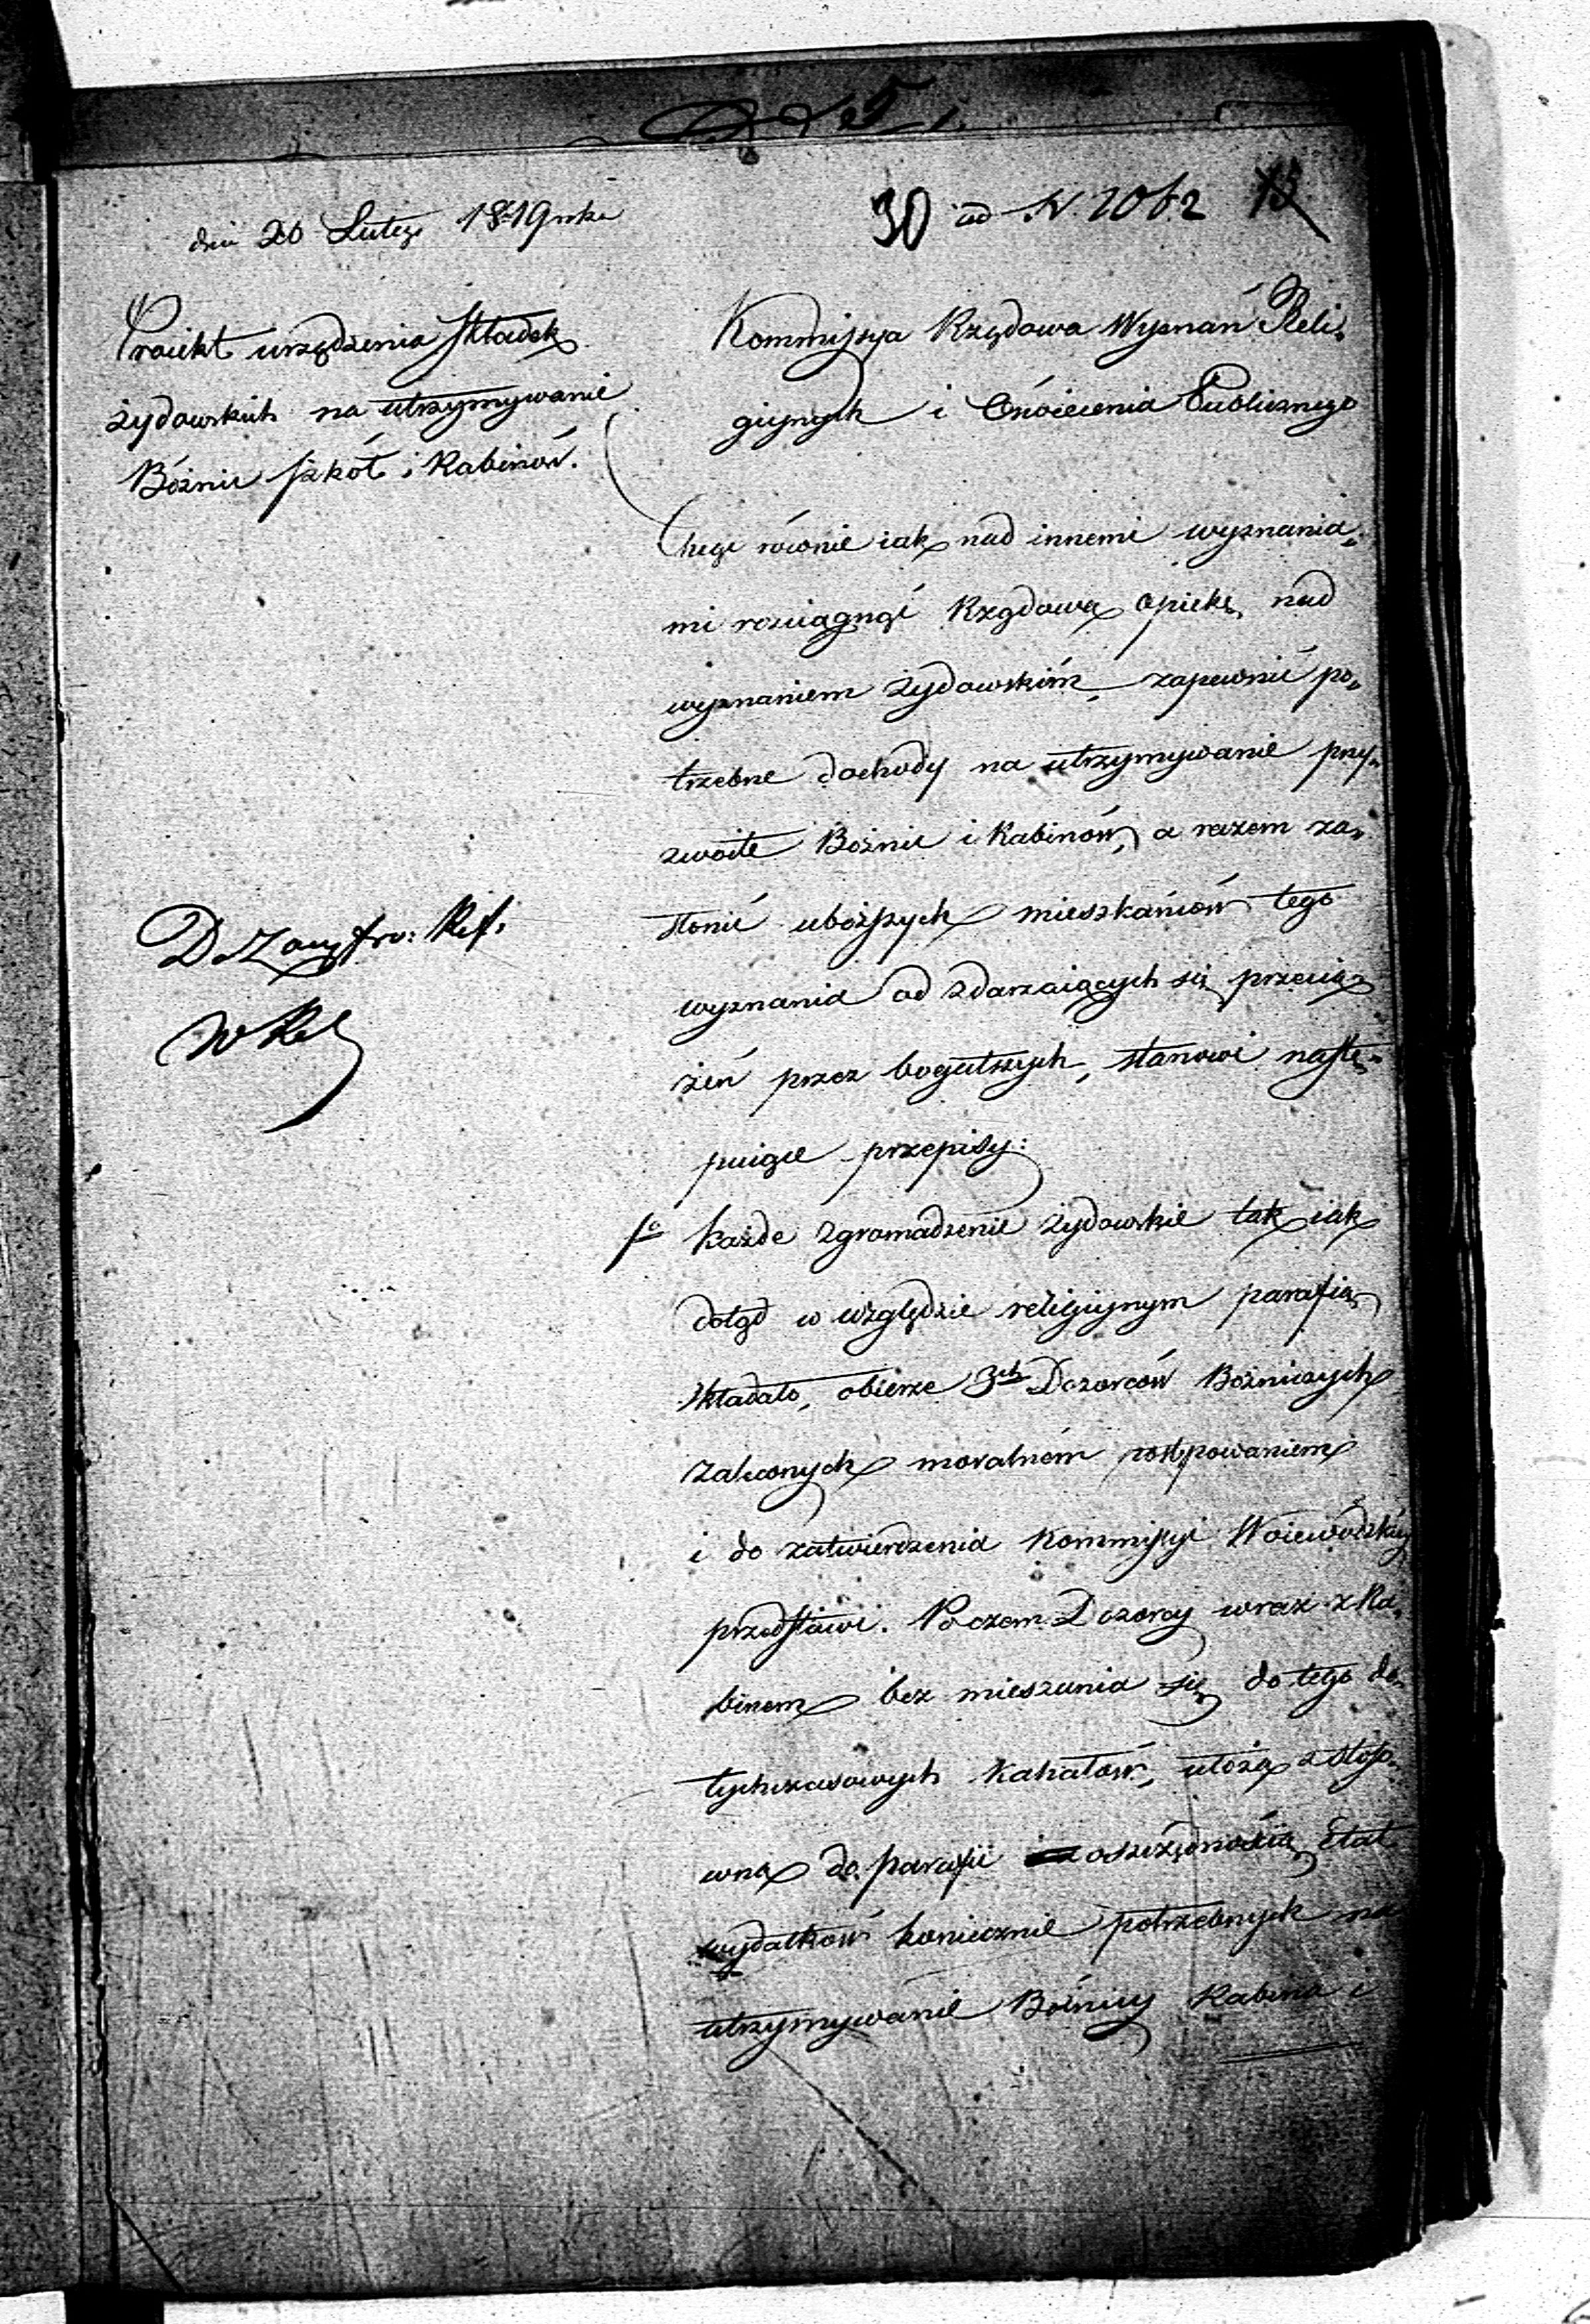 dnia 26 Lutego 1819 roku
30 ad N. 2062 73
Proiekt urządzenia składek
żydowskich na utrzymywanie
Bóżnic szkół i Rabinów.
Kommissya Rządowa Wyznań Reli-
giynych i Oświecenia Publicznego
Chcąc równie iak nad innemi wyznania-
mi rosciągnąć Rządową opiekę nad
wyznaniem żydowskim, zapewnić po-
trzebne dochody na utrzymywanie przy-
zwoite Bożnic i Rabinów, a razem za-
słonić uboższych mieszkańców tego
wyznania od zdarzaiących się przecią-
żeń przez bogatszych, stanowi nastę-
puiące przepisy:
1o Każde zgromadzenie żydowskie tak iak
dotąd w względzie religiynym parafią
składało, obierze 3ch Dozorców Bożniczych
zaleconych moralném postępowaniem
i do zatwierdzenia Kommissyi Woiewódzkiey
przedstawi. Poczem Dozorcy wraz z Ra-
binem bez mieszania się do tego do-
tychczasowych Kahałów, ułożą z stoso-
wną do parafii oszczędnością Etat
wydatków koniecznie potrzebnych na
utrzymywanie Bóżnicy Rabina i